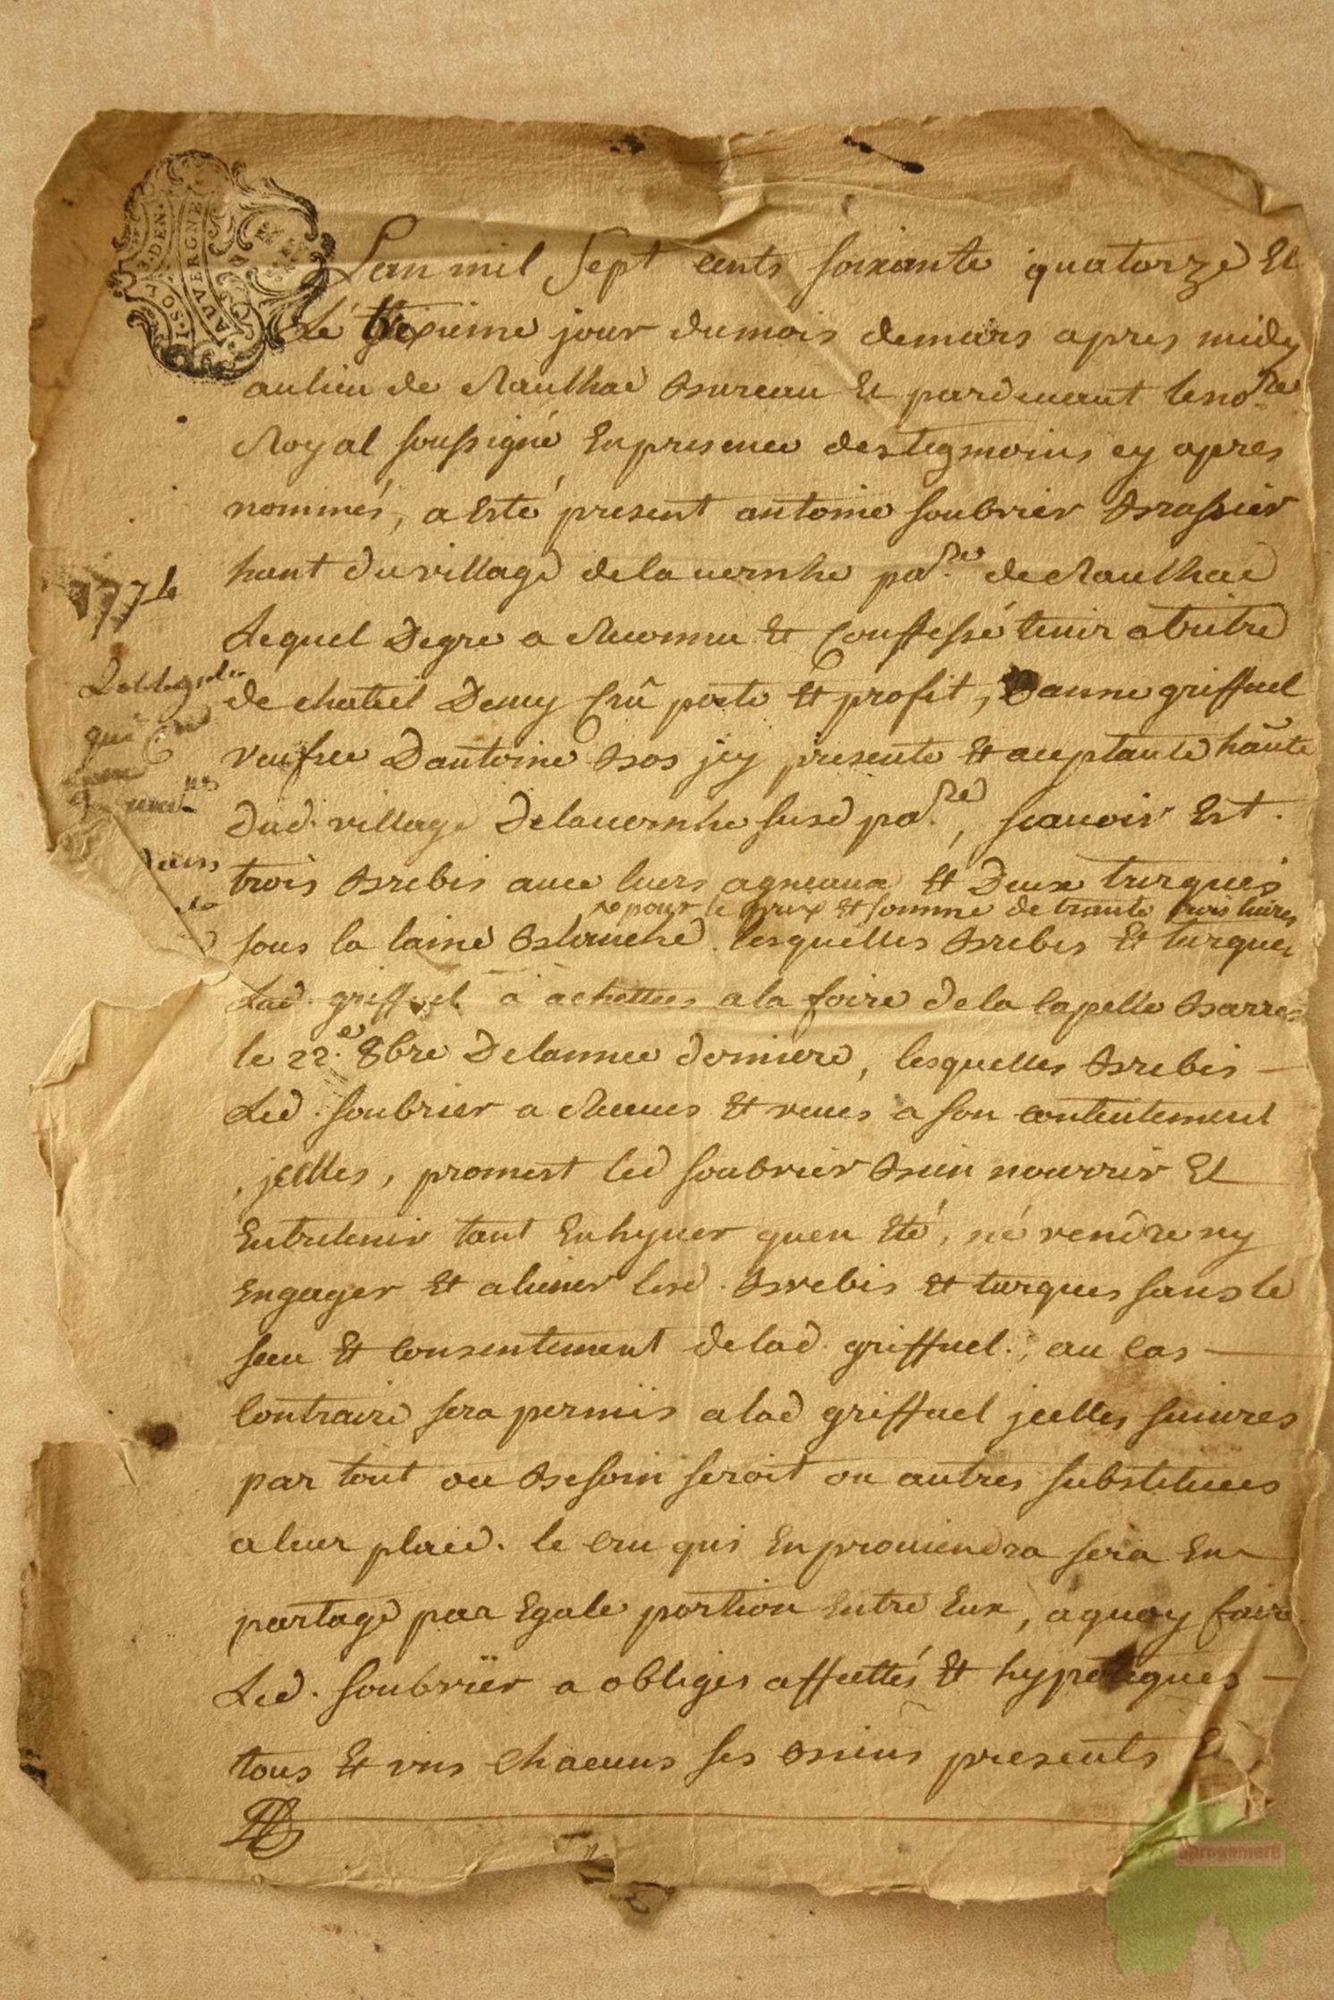 SOL 3 DEN
AUVERGNE
Lan mil Sept cents soixante quatorze Et
Le jour dumois demars apres midy
au lieu de Raulhac Bureau Et pardeuant leno.re
Royal soussigné En presence des tesmoins cy apres
nommés, a Esté present antoine Soubrier Brassier
hant du village delauernhe pa.sse de Raulhac
Lequel Degre a Reconnu Et Confessé tenir atiltre
de chateil Demy Crû perte Et profit, Danne griffuel
veufve Dantoine Bos jcy presente Et aceptante hãnte
Dud. village Delauernhe susd pa.sse, scauoir Est.
trois Brebis auec leurs agneaux Et Deux turques
pour le prix Et somme de trante trois liures
sous la laine Blanche. lesquelles Brebis Et turques
Lad. griffuel a achettées ala foire dela Capelle Barres
le 22.e 8bre Delannee derniere, lesquelles Brebis
Led. Soubrier a Receues Et veues a son contentement
jcelles, promest led Soubrier Bien nourrir Et
Entretenir tant En hyuer quen Eté, né vendre ny
Engager Et aliener lesd. Brebis Et turques sans le
sceu Et Consentement delad. griffuel. au Cas
Contraire sera permis alad griffuel jcelles suiures
par tout ou Besoin seroit ou autres substituees
a leur place. le Cru qui En prouiendra sera En
partage par Egale portion Entre Eux, a quoy faire
Led. Soubrier a obliges affectés Et hypoteques
tous Et vns Chacuns ses Biens presents Et
1774
qui